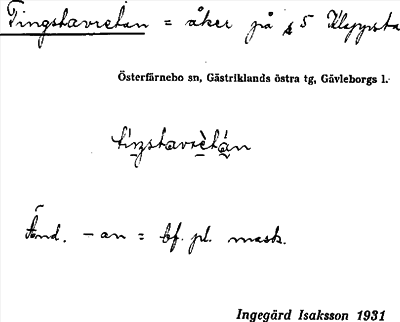 Tingshavretan = åker på 5 Klappsta
Österfärnebo sn, Gästriklands östra tg, Gävleborgs l.
Änd. -an = bf. pl. mask.
Ingegärd Isaksson 1931